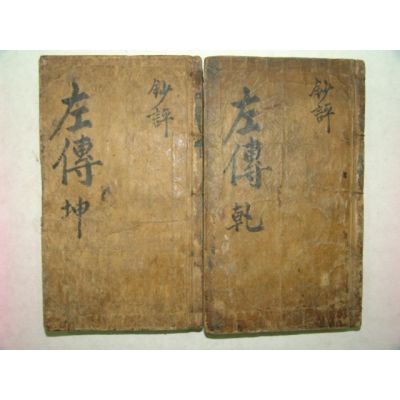 鈔評
左傳
乾
鈔評
左傳
坤